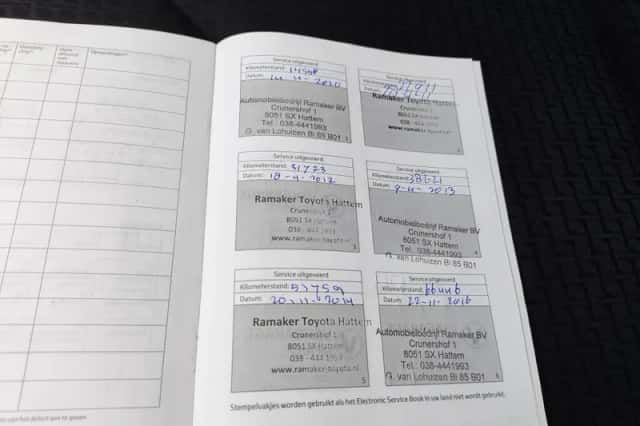 Service uitgevoerd
Kilometerstand:
Datum: 2010
Automobielbedrijf Ramaker BV
Crunershof 1
8051 SX Hattem
Tel.: 038-4441993
G. van Lohuizen Bi 85 B01
1
Service uitgevoerd
Kilometerstand:
Datum:
Ramaker Toyota Hattem
Crunershof 1
8051 SX Hattem
038 - 444 1993
www.ramaker-toyota.nl
Service uitgevoerd
Kilometerstand: 31773
Datum: 18-4-2012
Ramaker Toyota Hattem
Crunershof 1
8051 SX Hattem
038 - 444 1993
www.ramaker-toyota.nl
3
Service uitgevoerd
Kilometerstand:
Datum: 2013
Automobielbedrijf Ramaker BV
Crunershof 1
8051 SX Hattem
Tel.: 038-4441993
G. van Lohuizen Bi 85 B01
4
Service uitgevoerd
Kilometerstand: 53759
Datum: 20-11-2014
Ramaker Toyota Hattem
Crunershof 1
8051 SX Hattem
038 - 444 1993
www.ramaker-toyota.nl
5
Service uitgevoerd
Kilometerstand: 66446
Datum: 22-11-2016
Automobielbedrijf Ramaker BV
Crunershof 1
8051 SX Hattem
Tel.: 038-4441993
G. van Lohuizen Bi 85 B01
6
Stempelvakjes worden gebruikt als het Electronic Service Book in uw land niet wordt gebruikt.